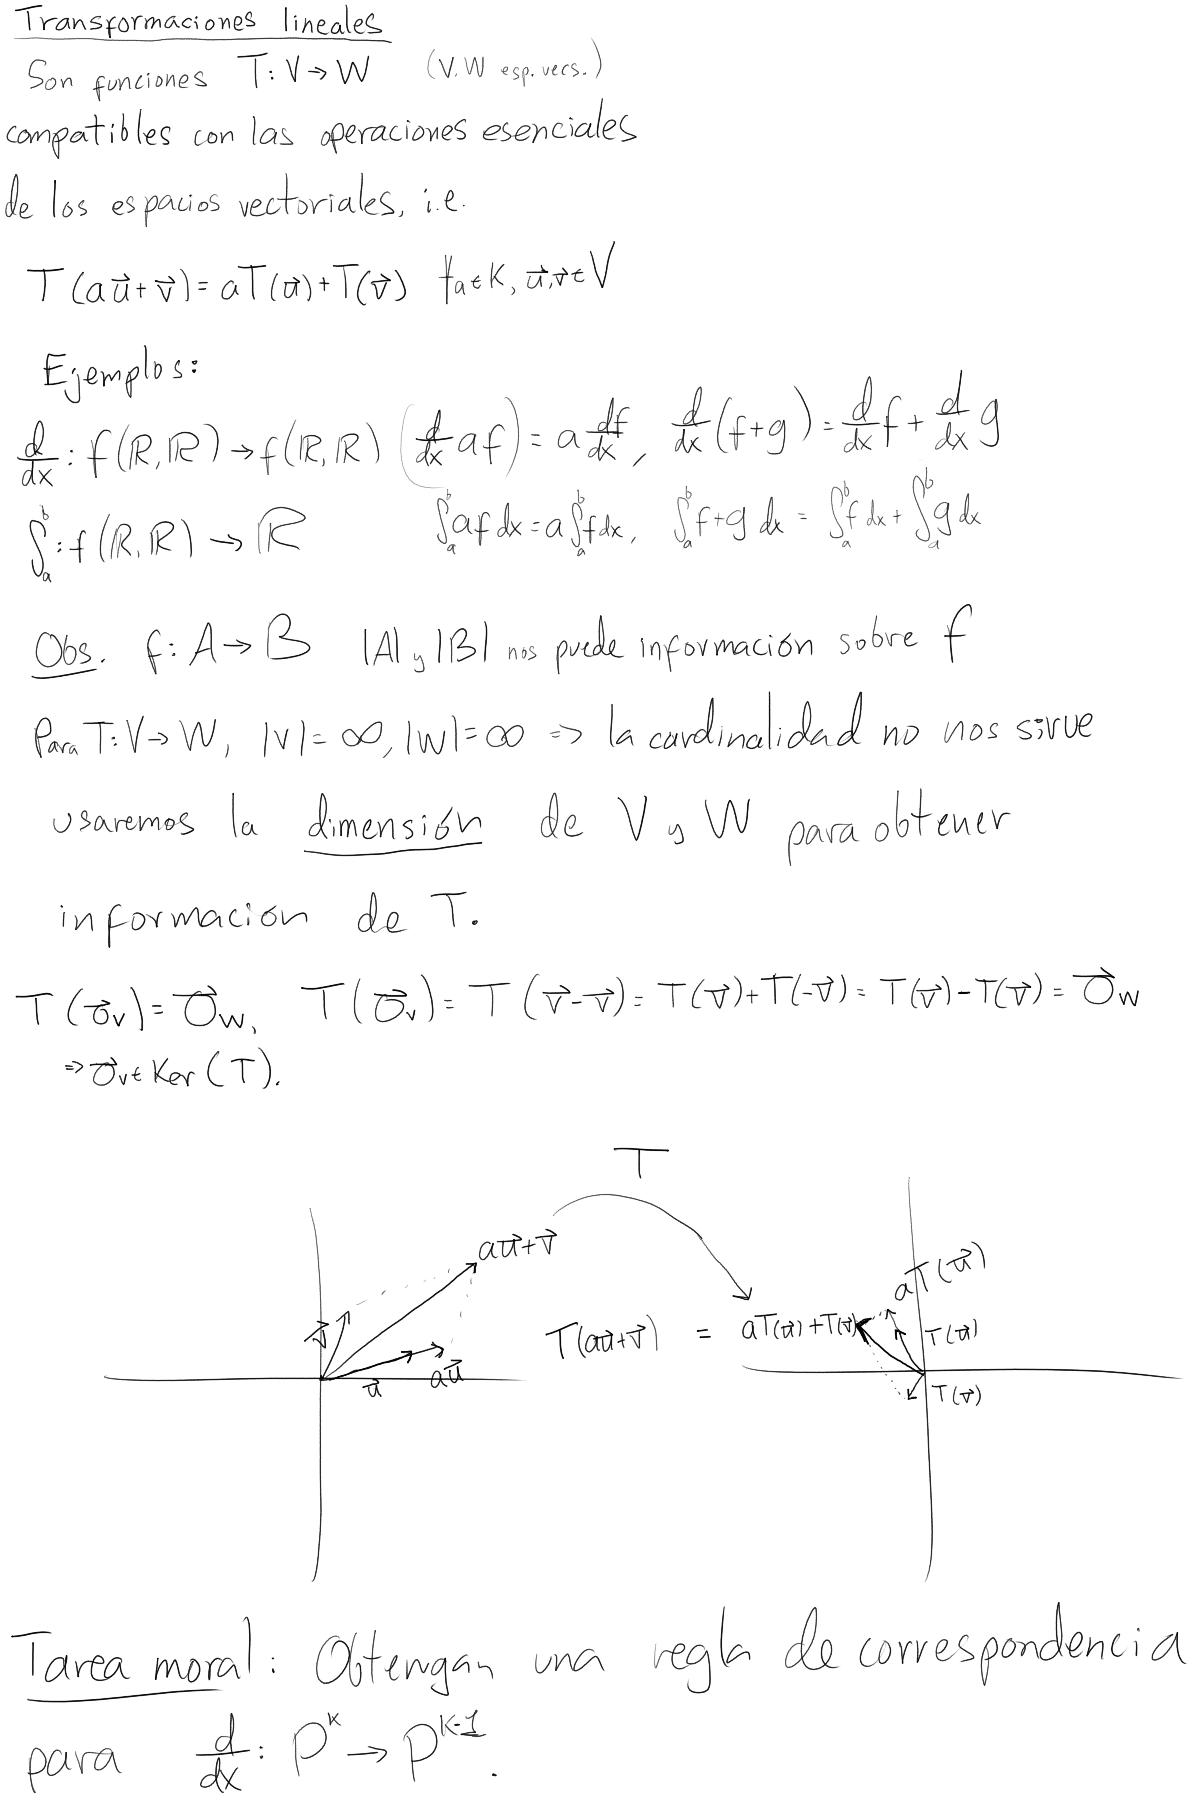 Transformaciones lineales
Son funciones T: V → W (V, W esp. vecs.)
compatibles con las operaciones esenciales
de los espacios vectoriales, i.e.
T(au⃗+v⃗) = aT(u⃗)+T(v⃗) ∀a∈K, u⃗,v⃗∈V
Ejemplos:
d/dx : f(R,R) → f(R,R) (d/dx af) = a df/dx, d/dx (f+g) = d/dx f + d/dx g
∫_a^b : f(R,R) → R ∫_a^b af dx = a∫_a^b f dx, ∫_a^b f+g dx = ∫_a^b f dx + ∫_a^b g dx
Obs. f: A → B |A| y |B| nos puede información sobre f
Para T: V → W, |V| = ∞, |W| = ∞ => la cardinalidad no nos sirve
usaremos la dimensión de V y W para obtener
información de T.
T(0⃗_V) = 0⃗_W, T(0⃗_V) = T(v⃗-v⃗) = T(v⃗)+T(-v⃗) = T(v⃗)-T(v⃗) = 0⃗_W
=> 0⃗_V ∈ Ker(T).
T
au⃗+v⃗
v⃗
u⃗
au⃗
T(au⃗+v⃗) = aT(u⃗)+T(v⃗)
aT(u⃗)
T(u⃗)
T(v⃗)
Tarea moral: Obtengan una regla de correspondencia
para d/dx : P^k → P^{k-1}.